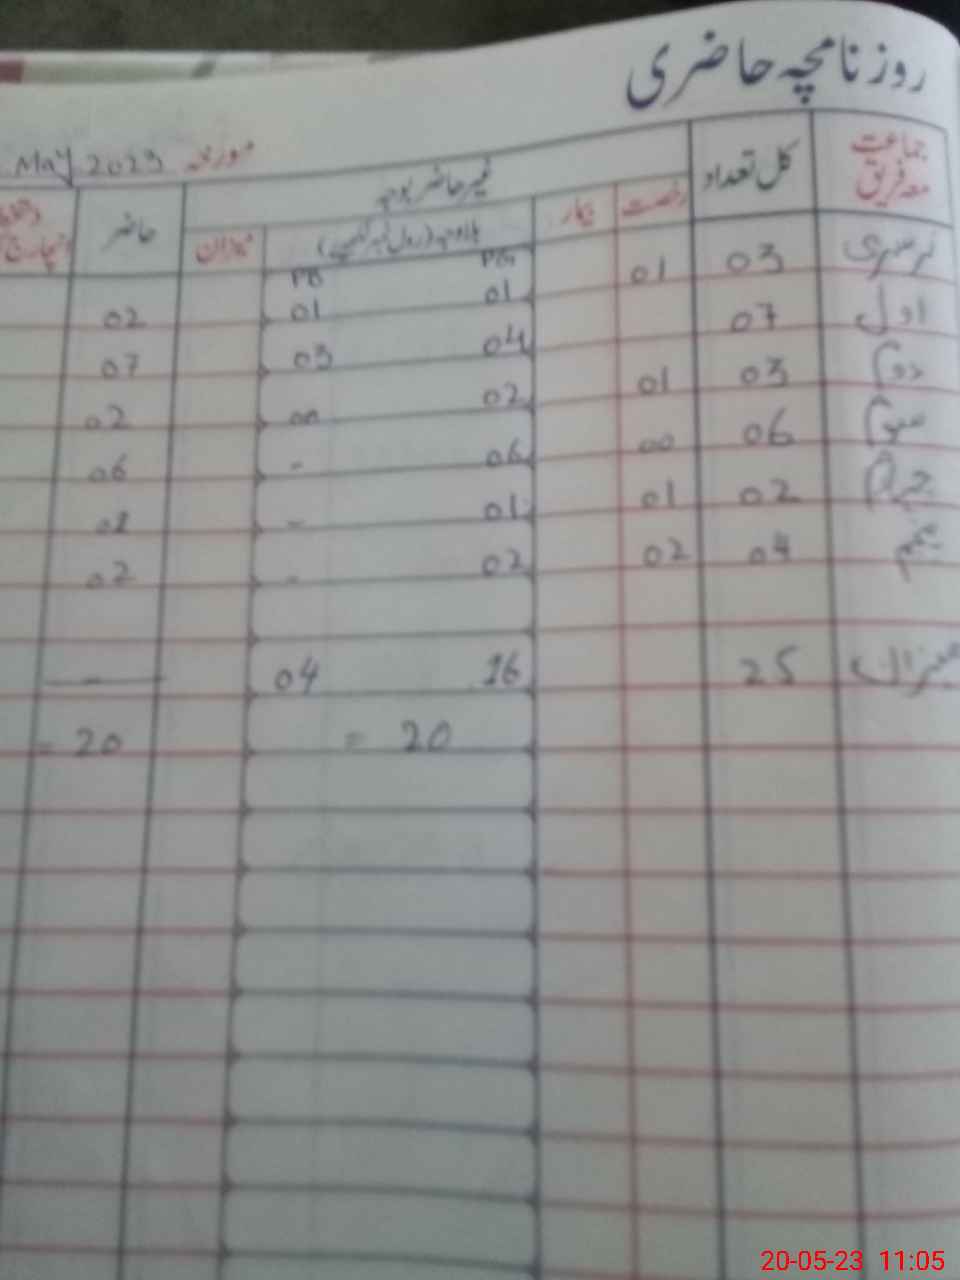 روزنامچہ حاضری
مورخہ May 2023
جماعت معہ فریق کل تعداد غیر حاضر بوجہ حاضر
رخصت بیمار بلاوجہ (رول نمبر لکھیے) میزان
PG PB
نرسری 03 01 01 01 02
اول 07 04 03 07
دوم 03 01 02 00 02
سوم 06 00 06 - 06
چہارم 02 01 01 -
پنجم 04 02 02 - 02
میزان 25 16 04
= 20 = 20
20-05-23 11:05